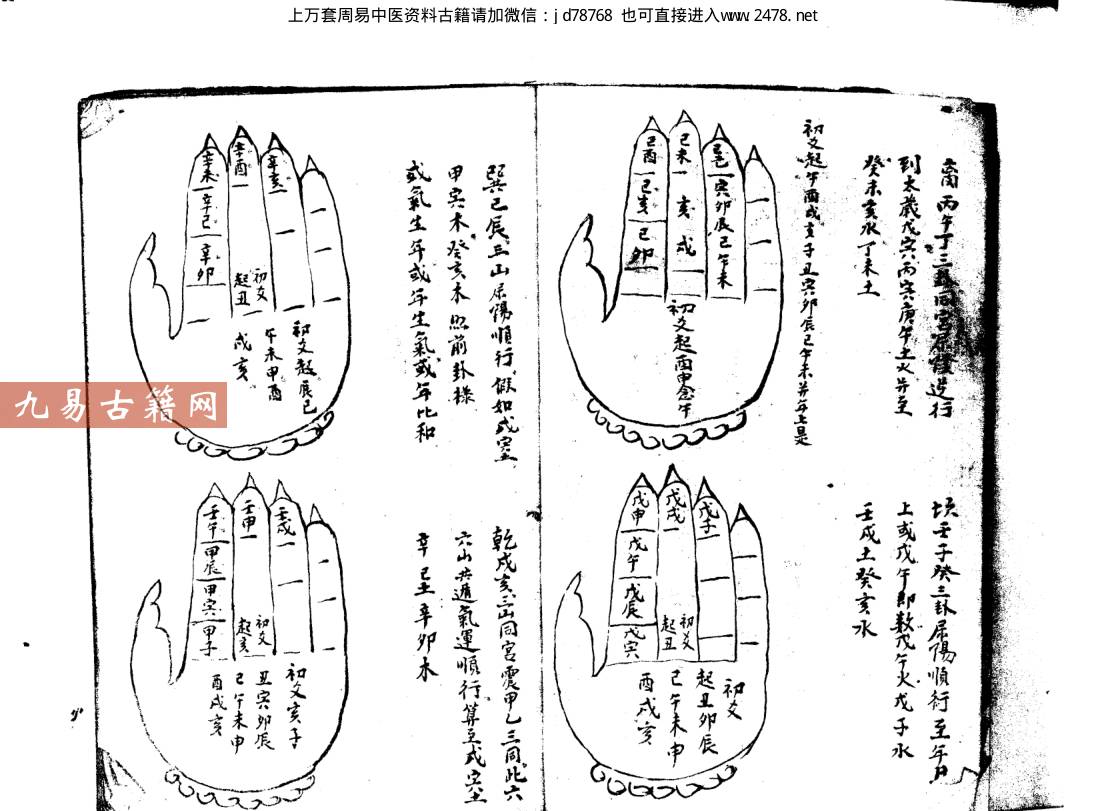 上万套周易中医资料古籍请加微信：jd78768 也可直接进入www.2478.net
丙午丁三卦同宮屬陰逆行
到太歲戊寅丙寅庚午土火并至
癸未亥水丁未土
初爻起午酉戌亥子丑寅卯辰己午未并年上是
己酉
己亥
己卯
己未
亥
戌
己巳
寅卯辰己午未
初爻起酉申念午
壬子癸三卦屬陽順行至年月
上或戊午即数戊午火戊子水
壬戌土癸亥水
戊申
戊午
戊辰
戊寅
戊戌
初爻
起丑
戊子
初爻
起丑卯辰
己午未申
酉戌亥
巽己辰三山屬陽順行假如戊寅土
甲寅木癸亥木照前卦樣
或氣生年或年生氣或年比和
辛未
辛己
辛卯
辛酉
初爻
起丑
辛亥
初爻起辰己
午未申酉
戌亥
乾戌亥三山同宮震甲乙三同此六
六山共遁氣運順行算至戊寅土
辛己土辛卯木
壬午
甲辰
甲寅
甲子
壬申
初爻
起亥
壬戌
初爻亥子
丑寅卯辰
己午未申
酉戌亥
九易古籍网